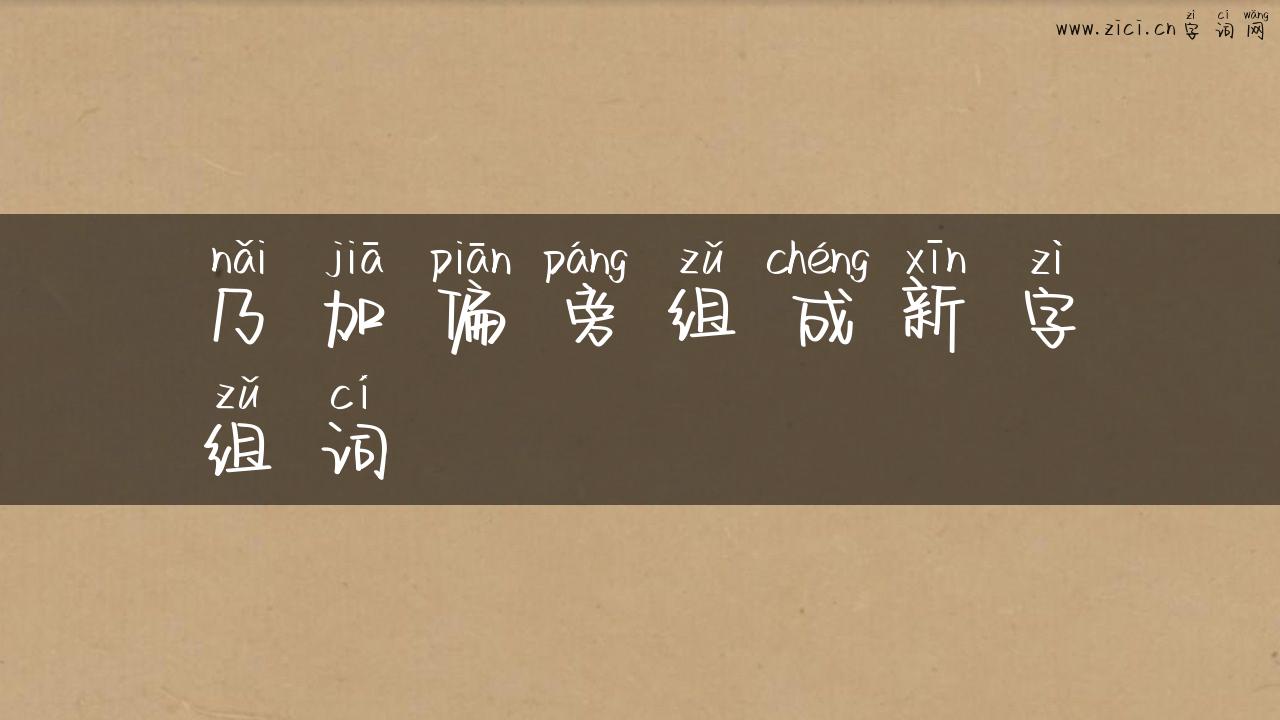 zì cí wǎng
www.zici.cn 字 词 网
nǎi jiā piān páng zǔ chéng xīn zì
乃 加 偏 旁 组 成 新 字
zǔ cí
组 词